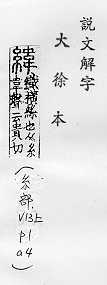 說文解字
大徐本
緯
織橫絲也从糸
韋聲云貴切
(糸部
V13上
p1
a4)